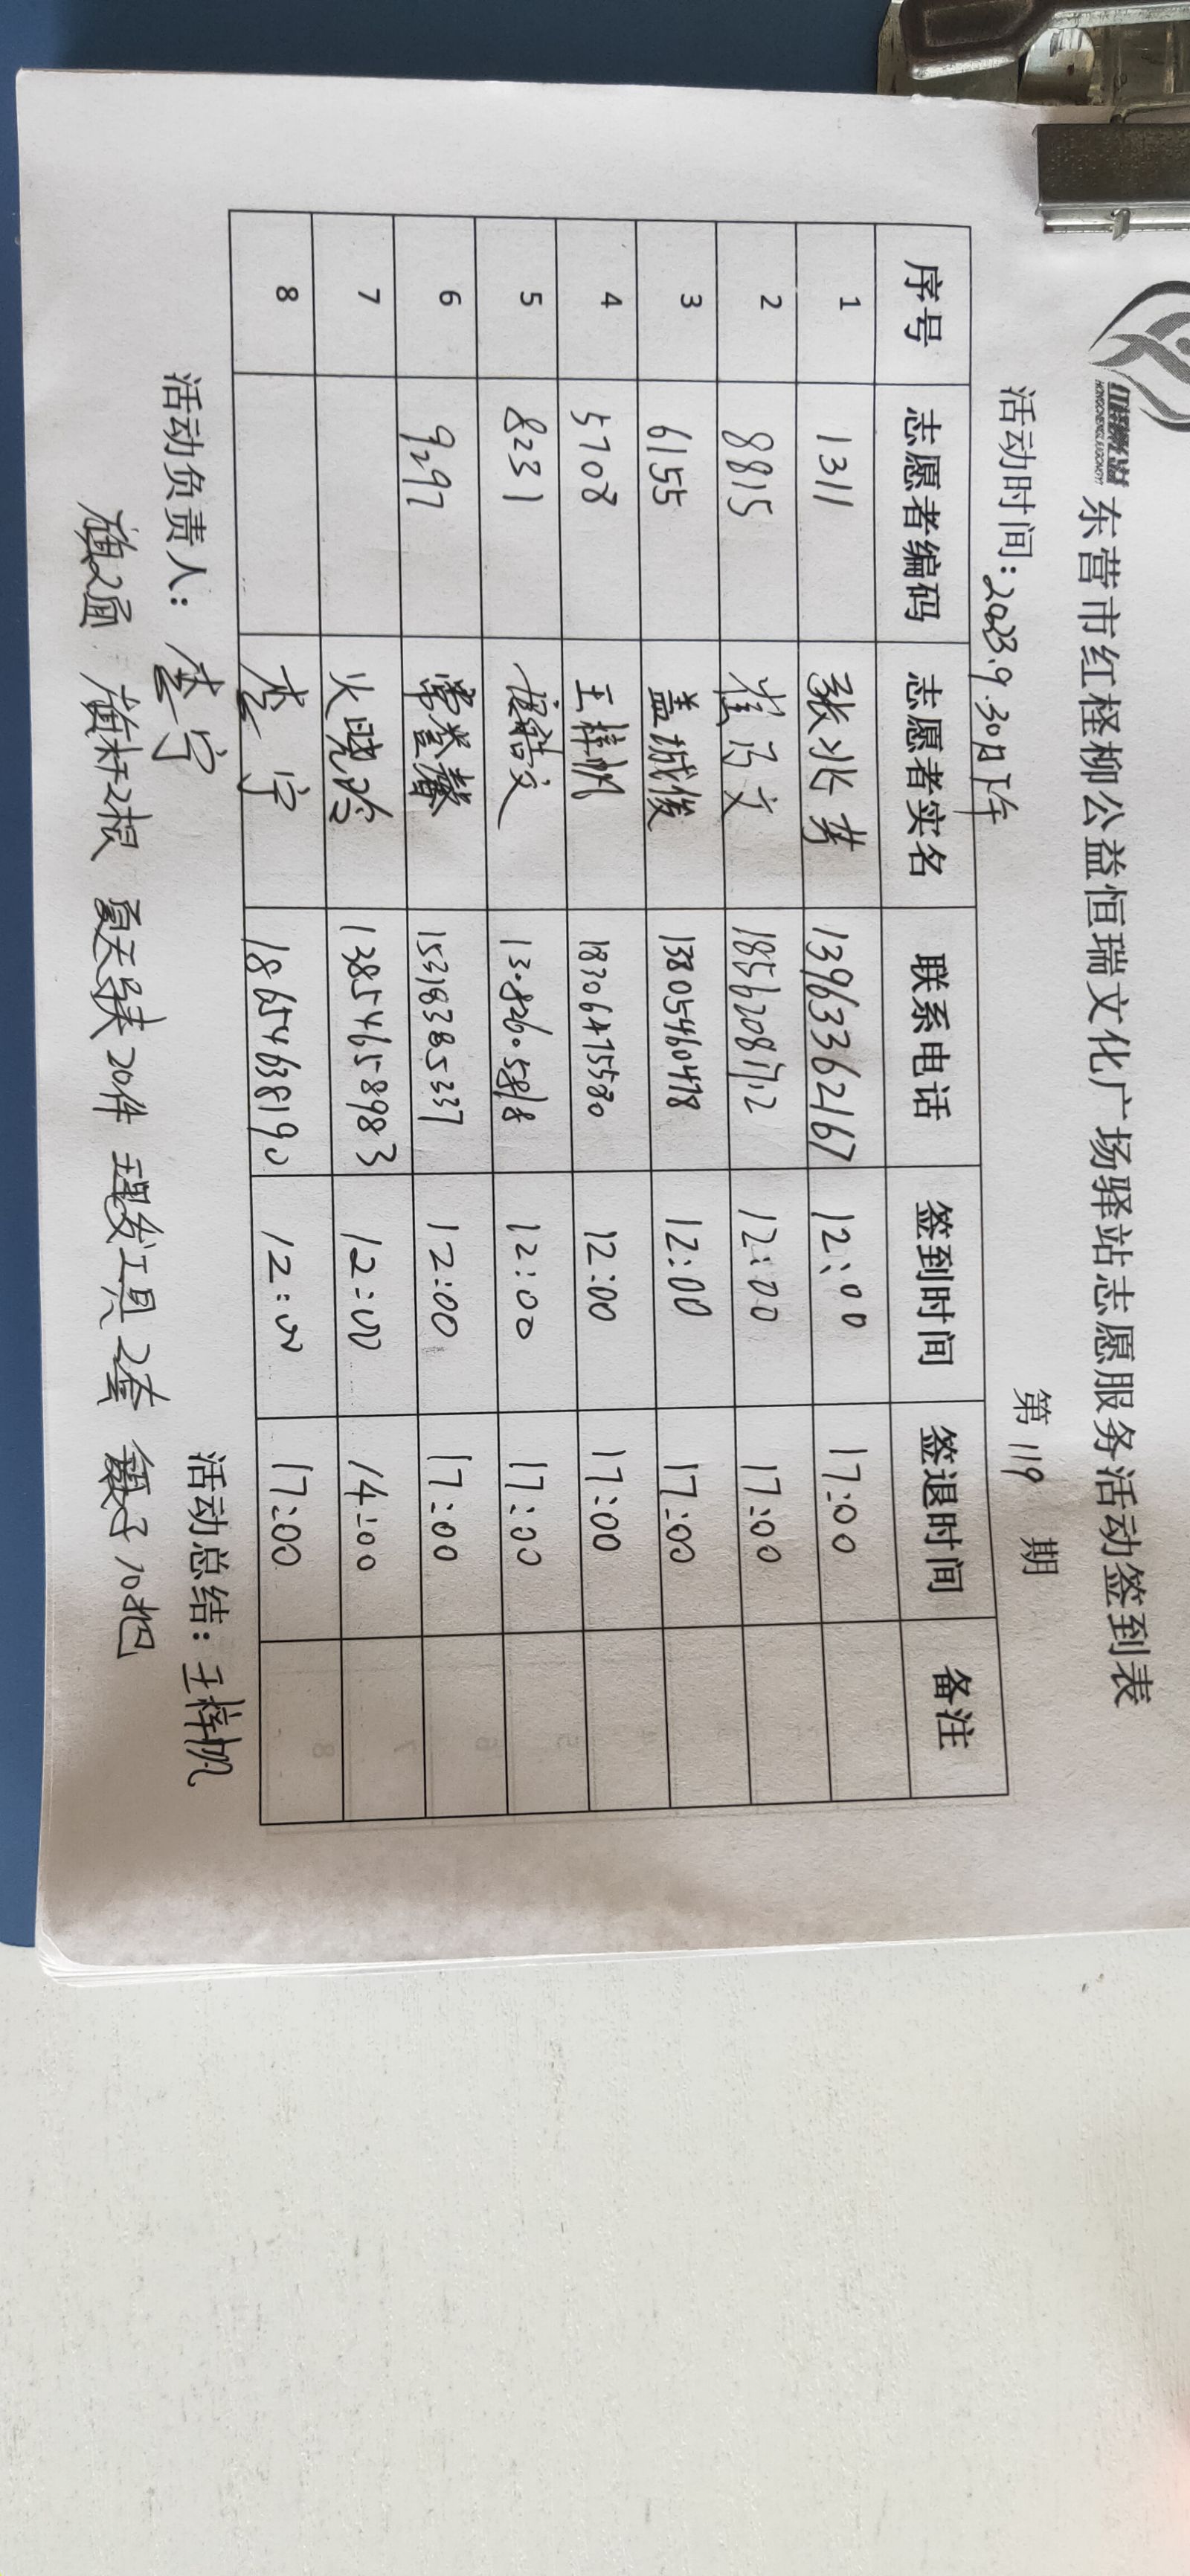 红柽柳公益
东营市红柽柳公益恒瑞文化广场驿站志愿服务活动签到表
活动时间：2023.9.30日下午 第119期
序号 志愿者编码 志愿者实名 联系电话 签到时间 签退时间 备注
1 1311 张兆芳 13963362167 12:00 17:00
2 8815 崔乃文 18562081712 12:00 17:00
3 6155 盖城俊 13805460478 12:00 17:00
4 5708 王梓帆 18306475580 12:00 17:00
5 8231 12:00 17:00
6 9297 常登馨 15318385337 12:00 17:00
7 火晓玲 13854658983 12:00 14:00
8 李宁 18654638190 12:00 17:00
活动负责人：李宁 活动总结：王梓帆
旗2面 旗杆2根 夏天马夹20件 理发工具2套 10把